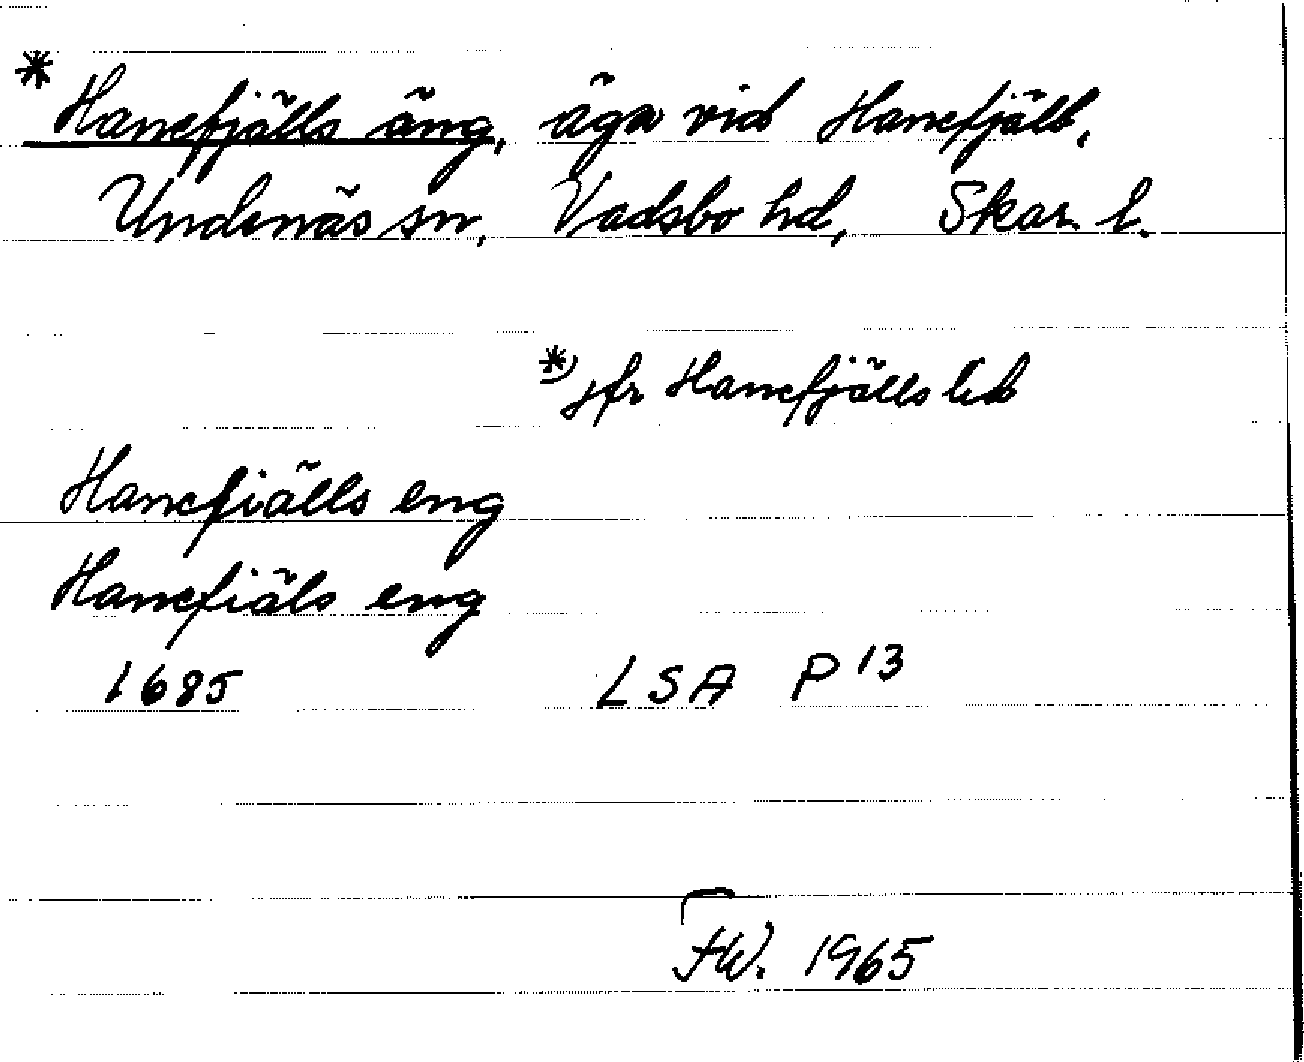 * Hanefjälls äng, äga vid Hanefjäll,
Undenäs sn, Vadsbo hd, Skar. l.
*) jfr Hanefjälls led
Hanefiälls eng
Hanefiäls eng
1685 LSA P 13
FW. 1965